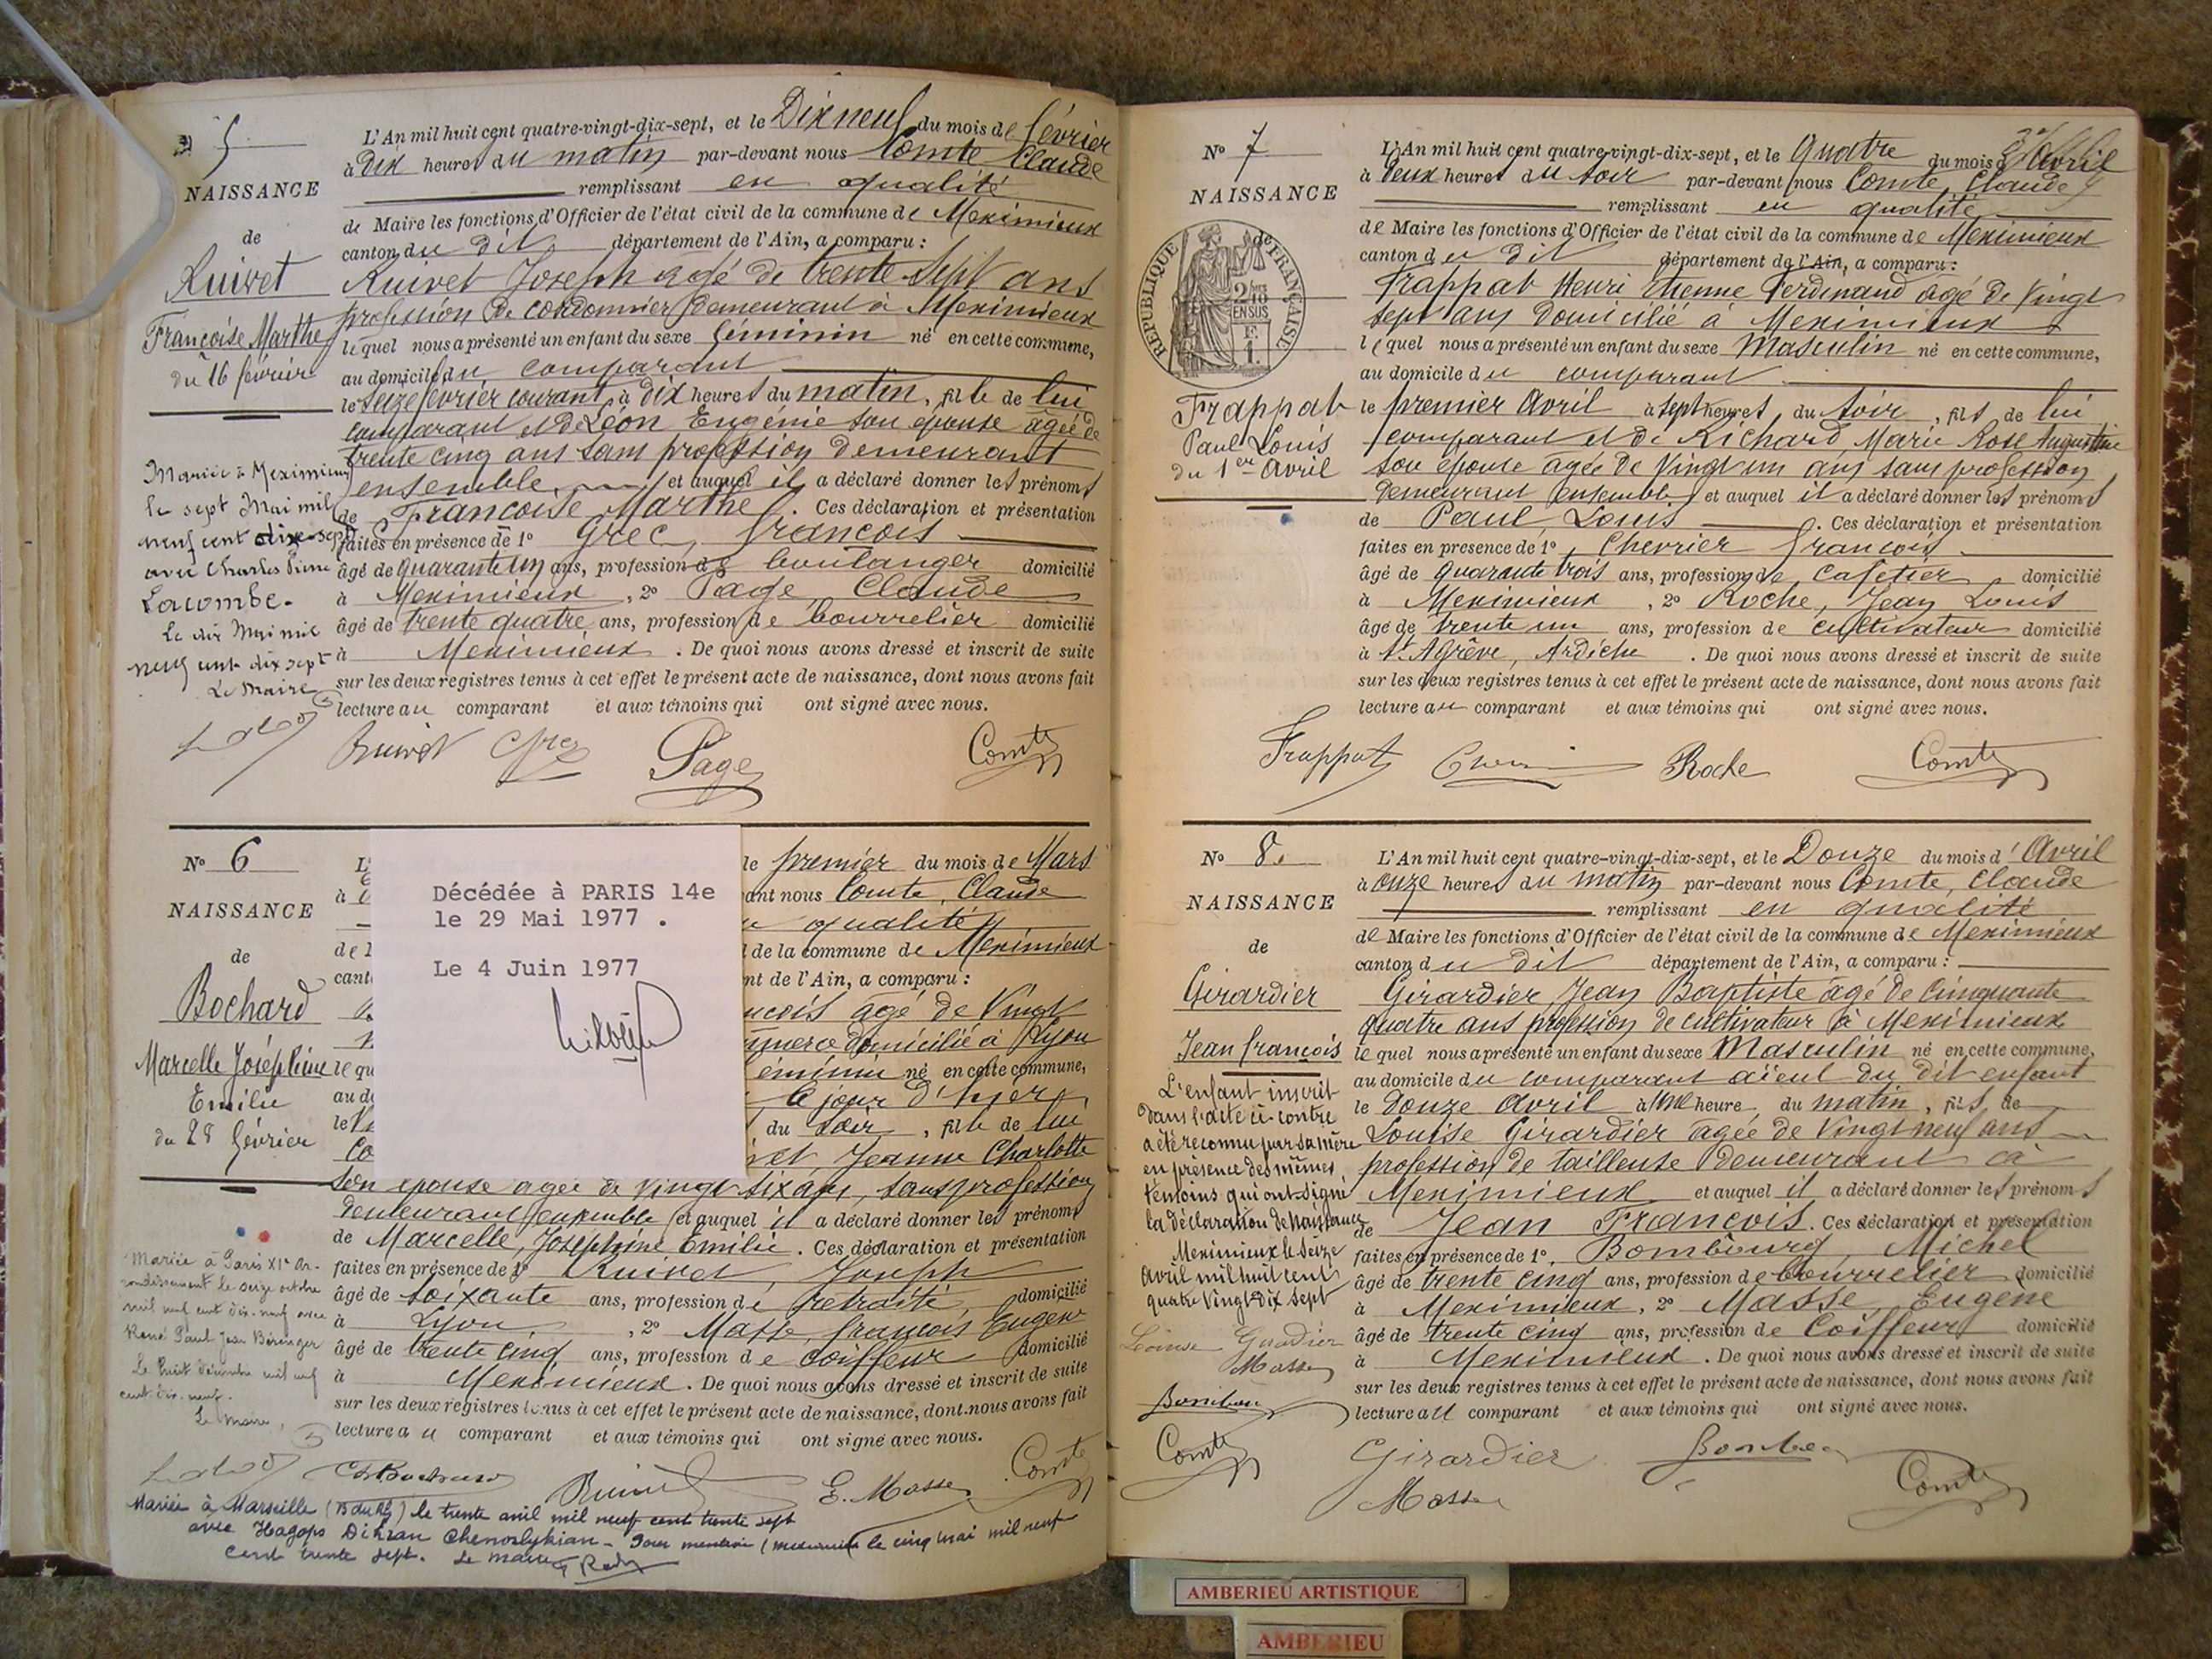 5
NAISSANCE
de
Ruivet
Françoise Marthe
du 16 février
Mariée à Meximieux
le sept Mai mil
neuf cent dix-sept
avec Charles Pierre
Lacombe.
Le dix Mai mil
neuf cent dix sept
Le Maire
L'An mil huit cent quatre-vingt-dix-sept, et le Dix neuf du mois de février
à dix heures du matin par-devant nous Comte Claude
remplissant en qualité
de Maire les fonctions d'Officier de l'état civil de la commune de Meximieux
canton du dit département de l'Ain, a comparu :
Ruivet Joseph agé de trente sept ans
profession de cordonnier demeurant à Meximieux
lequel nous a présenté un enfant du sexe féminin né en cette commune,
au domicile du comparant
le seize février courant, à dix heures du matin, fille de lui
comparant et de Léon Eugénie son épouse âgée de
trente cinq ans sans profession demeurant
ensemble et auquel il a déclaré donner les prénoms
de Françoise Marthe. Ces déclaration et présentation
faites en présence de 1° Grec, françois
âgé de quarante un ans, profession de boulanger domicilié
à Meximieux, 2° Page, Claude
âgé de trente quatre ans, profession de bourrelier domicilié
à Meximieux. De quoi nous avons dressé et inscrit de suite
sur les deux registres tenus à cet effet le présent acte de naissance, dont nous avons fait
lecture au comparant et aux témoins qui ont signé avec nous.
Ruivet Grec Page Comte
N° 6
NAISSANCE
de
Bochard
Marcelle Joséphine
Emilie
du 28 février
Mariée à Paris XIe Ar-
rondissement le seize octobre
mil neuf cent dix-neuf avec
René Paul Jean Béringer
Le huit décembre mil neuf
cent dix-neuf.
Le Maire,
Décédée à PARIS 14e
le 29 Mai 1977 .
Le 4 Juin 1977
le premier du mois de Mars
ant nous Comte, Claude
qualité
de la commune de Meximieux
nt de l'Ain, a comparu :
ncois agé de Vingt
mmerce domicilié à Lyon
éminin né en cette commune,
le jour d'hier
du soir, fille de lui
vet, Jeanne Charlotte
son épouse agée de vingt six ans, sans profession
demeurant ensemble et auquel il a déclaré donner les prénoms
de Marcelle, Joséphine Emilie. Ces déclaration et présentation
faites en présence de 1° Ruivet, Joseph
âgé de soixante ans, profession de retraité, domicilié
à Lyon, 2° Masse, françois Eugène
âgé de trente cinq ans, profession de coiffeur domicilié
à Meximieux. De quoi nous avons dressé et inscrit de suite
sur les deux registres tenus à cet effet le présent acte de naissance, dont nous avons fait
lecture au comparant et aux témoins qui ont signé avec nous.
Ruivet E. Masse Comte
Mariée à Marseille (B du Rh) le trente avril mil neuf cent trente sept
avec Hagops Dikran Pour mention le cinq mai mil neuf
cent trente sept. Le Maire
N° 7
NAISSANCE
de
RÉPUBLIQUE FRANÇAISE
2/10 EN SUS
F. 1.
Frappat
Paul Louis
du 1er Avril
L'An mil huit cent quatre-vingt-dix-sept, et le Quatre du mois d'Avril
à deux heures du soir par-devant nous Comte, Claude
remplissant en qualité
de Maire les fonctions d'Officier de l'état civil de la commune de Meximieux
canton du dit département de l'Ain, a comparu :
Frappat Henri Etienne Ferdinand agé de Vingt
sept ans domicilié à Meximieux
lequel nous a présenté un enfant du sexe Masculin né en cette commune,
au domicile du comparant
le premier Avril à sept heures, du soir, fils de lui
comparant et de Richard Marie Rose Augustine
son épouse agée de Vingt un ans sans profession
demeurant ensemble et auquel il a déclaré donner les prénoms
de Paul, Louis. Ces déclaration et présentation
faites en présence de 1°, Chevrier françois
âgé de quarante trois ans, profession de cafetier domicilié
à Meximieux, 2° Roche, Jean Louis
âgé de trente un ans, profession de cultivateur domicilié
à St Agrève, Ardèche. De quoi nous avons dressé et inscrit de suite
sur les deux registres tenus à cet effet le présent acte de naissance, dont nous avons fait
lecture au comparant et aux témoins qui ont signé avec nous.
Frappat Roche Comte
N° 8.
NAISSANCE
de
Girardier
Jean françois
L'enfant inscrit
dans l'acte ci-contre
a été reconnu par sa mère
en présence des mêmes
témoins qui ont signé
la déclaration de naissance
Meximieux le seize
avril mil huit cent
quatre Vingt dix sept
Louise Girardier
Masse
Comte
L'An mil huit cent quatre-vingt-dix-sept, et le Douze du mois d'Avril
à onze heures du matin par-devant nous Comte, Claude
remplissant en qualité
de Maire les fonctions d'Officier de l'état civil de la commune de Meximieux
canton du dit département de l'Ain, a comparu :
Girardier Jean Baptiste agé de Cinquante
quatre ans profession de cultivateur à Meximieux
lequel nous a présenté un enfant du sexe Masculin né en cette commune,
au domicile du comparant aïeul du dit enfant
le Douze Avril à une heure, du matin, fils de
Louise Girardier agée de Vingt neuf ans
profession de tailleuse demeurant à
Meximieux et auquel il a déclaré donner les prénoms
de Jean François. Ces déclaration et présentation
faites en présence de 1°, Bombourg, Michel
âgé de trente cinq ans, profession de bourrelier domicilié
à Meximieux, 2° Masse, Eugène
âgé de trente cinq ans, profession de Coiffeur domicilié
à Meximieux. De quoi nous avons dressé et inscrit de suite
sur les deux registres tenus à cet effet le présent acte de naissance, dont nous avons fait
lecture au comparant et aux témoins qui ont signé avec nous.
Girardier Comte
Masse
AMBERIEU ARTISTIQUE
AMBERIEU